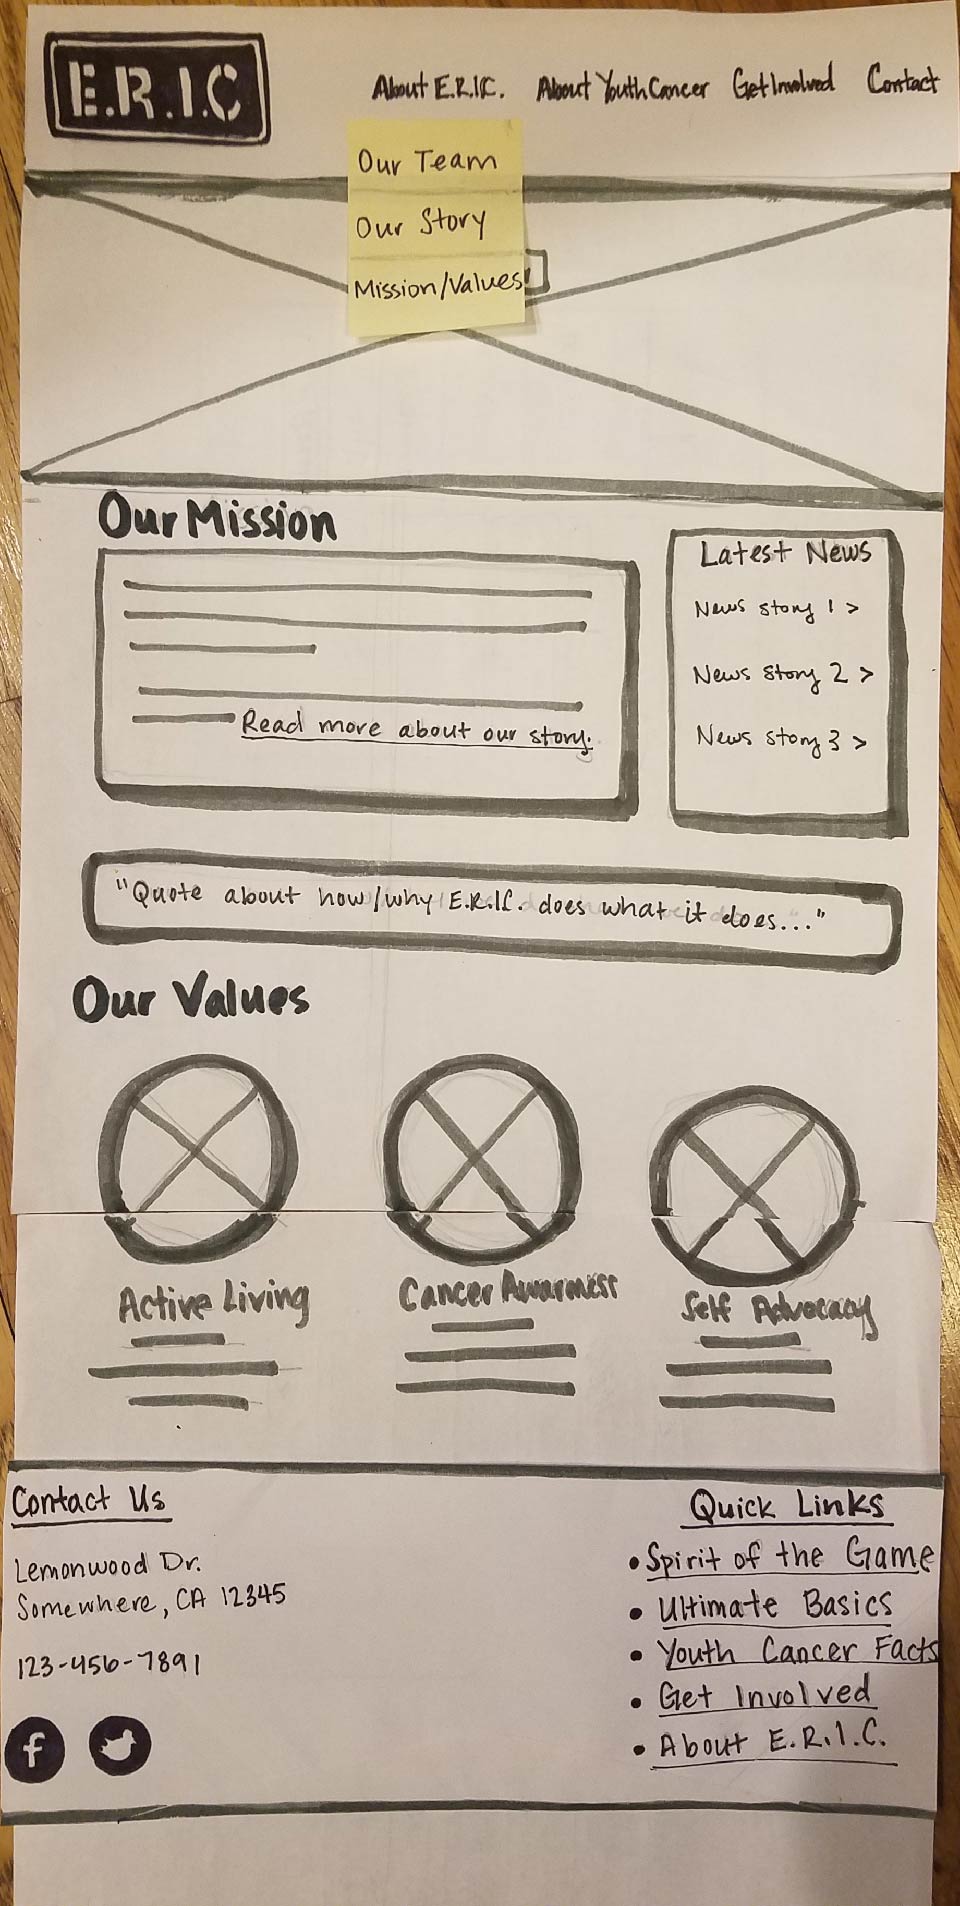 E.R.I.C
About E.R.I.C. About Youth Cancer Get Involved Contact
Our Team
Our Story
Mission/Values
Our Mission
Read more about our story.
Latest News
News story 1 >
News story 2 >
News story 3 >
"Quote about how/why E.R.I.C. does what it does..."
Our Values
Active Living
Cancer Awareness
Self Advocacy
Contact Us
Lemonwood Dr.
Somewhere, CA 12345
123-456-7891
f
Quick Links
• Spirit of the Game
• Ultimate Basics
• Youth Cancer Facts
• Get Involved
• About E.R.I.C.